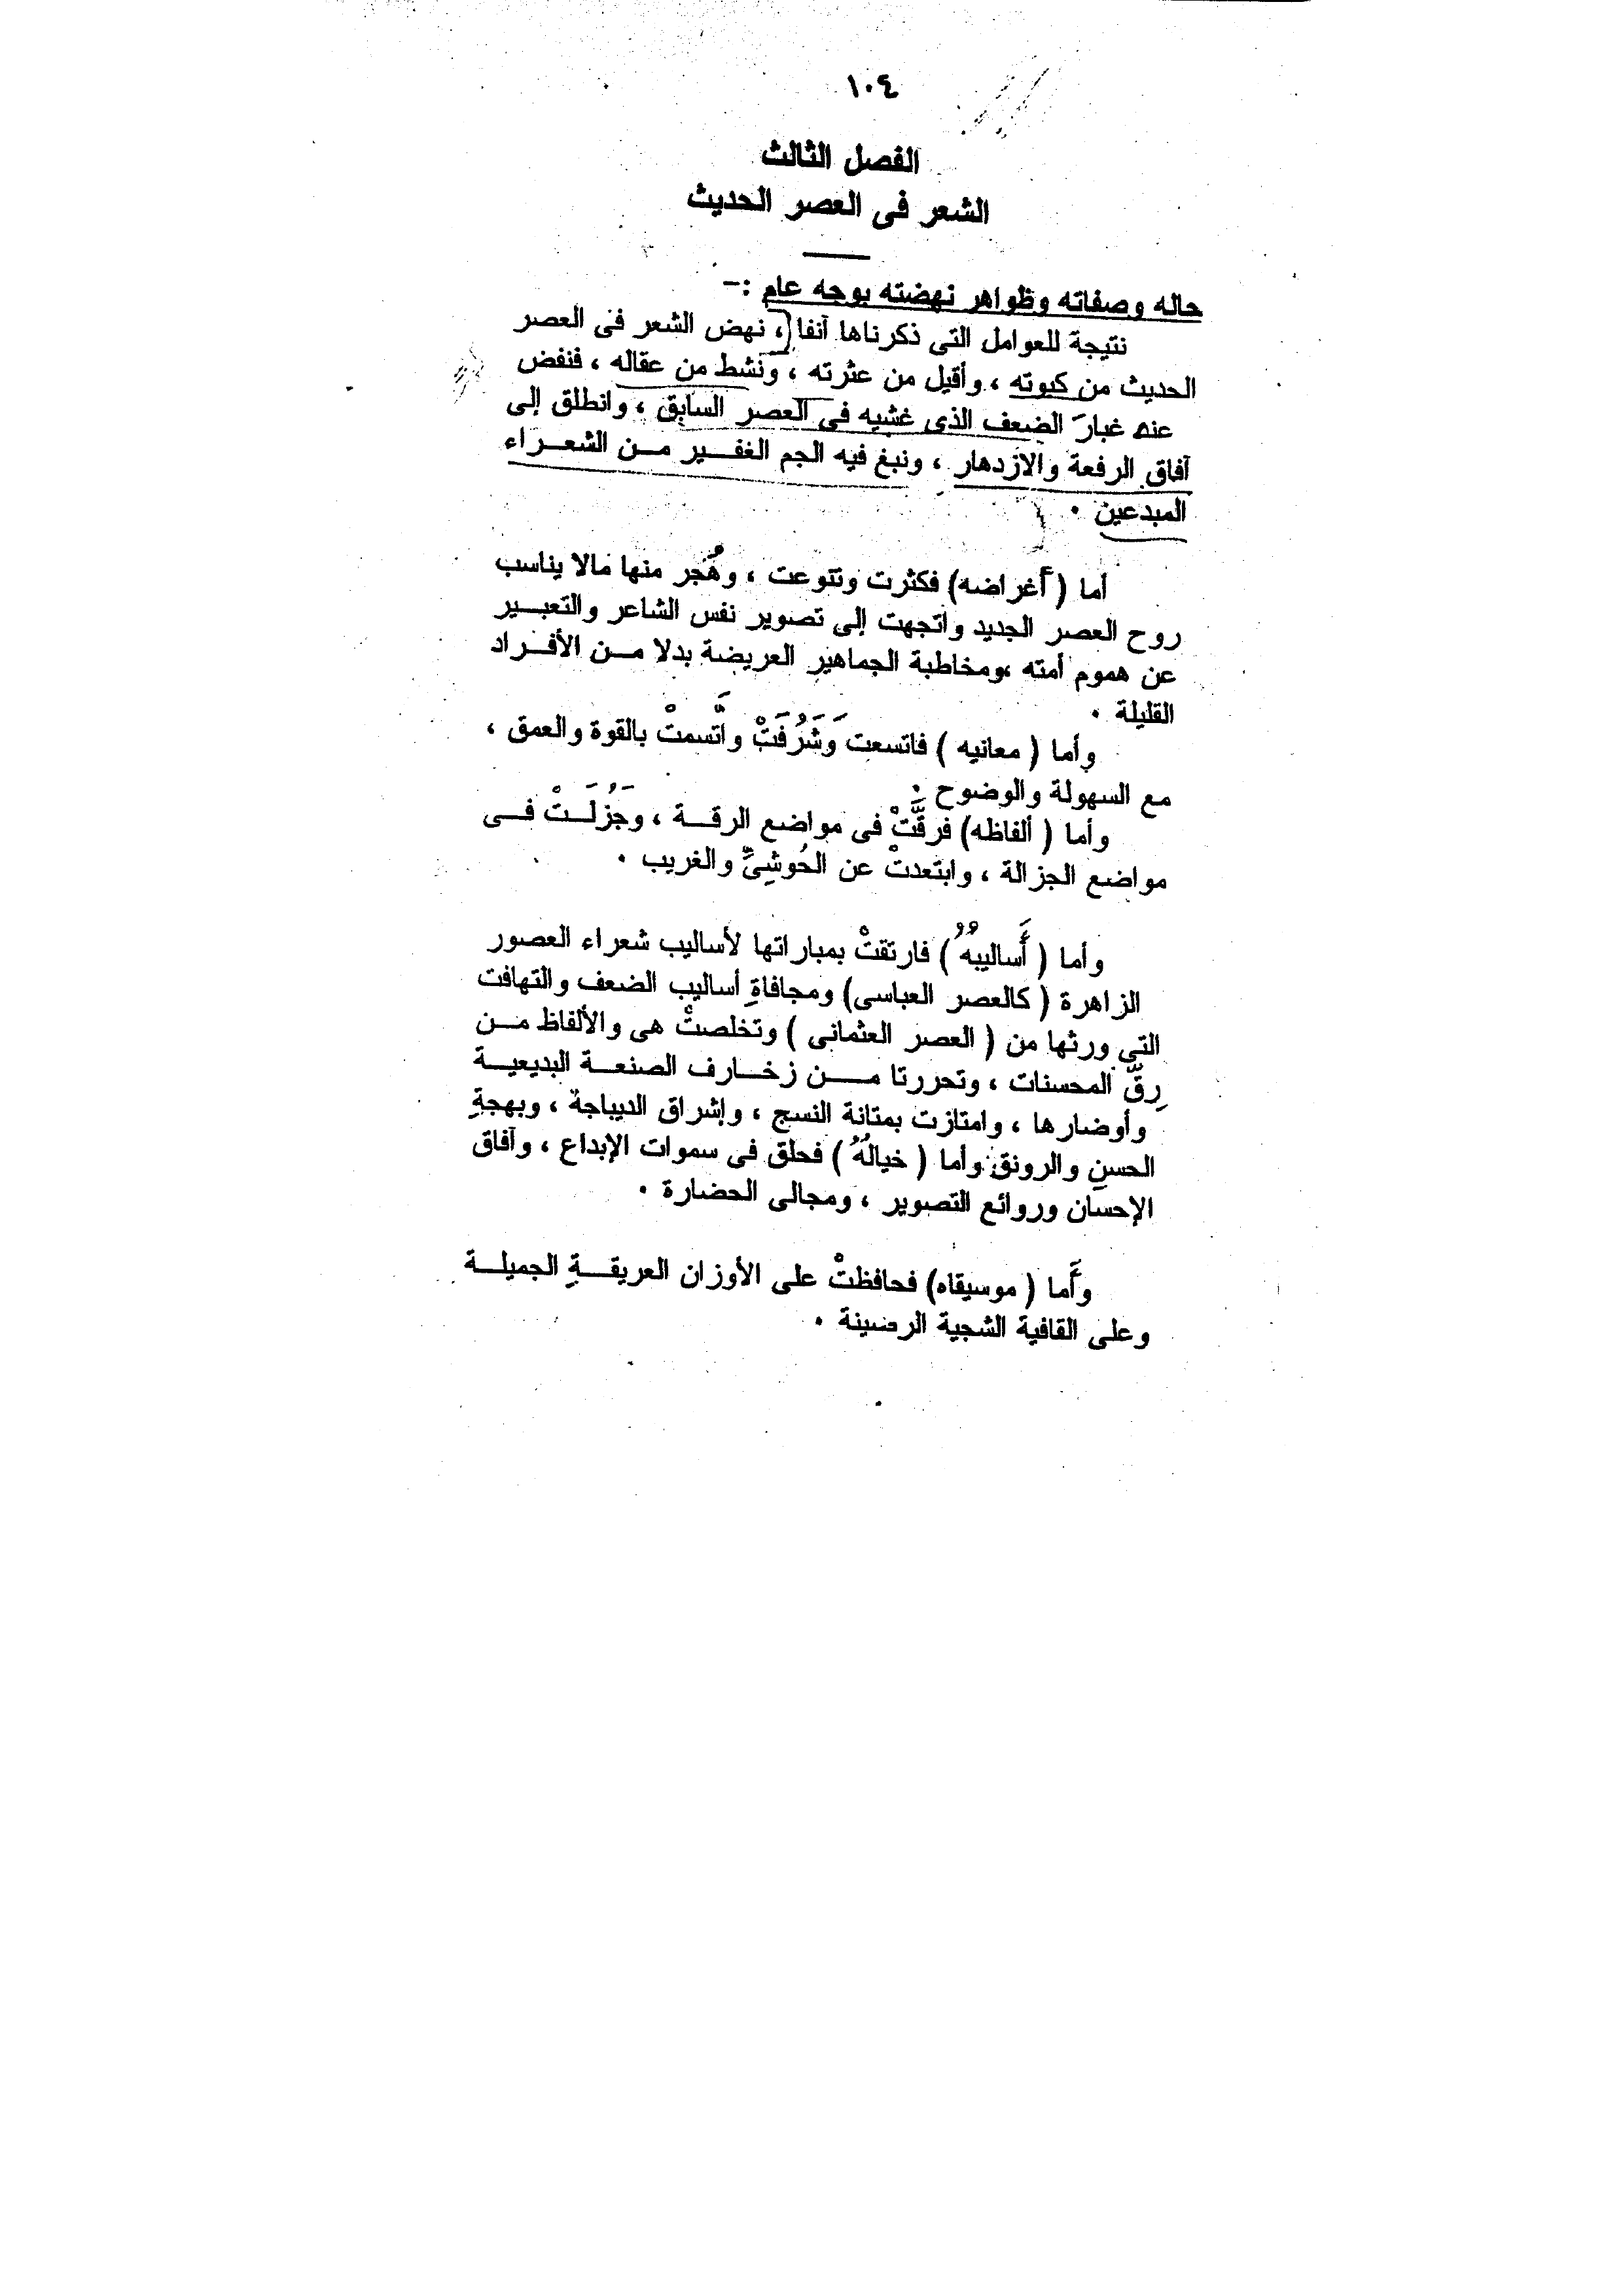 ١٠٤
الفصل الثالث
الشعر فى العصر الحديث
حاله وصفاته وظواهر نهضته بوجه عام :-
نتيجة للعوامل التى ذكرناها آنفا ، نهض الشعر فى العصر
الحديث من كبوته ، وأقيل من عثرته ، ونشط من عقاله ، فنفض
عنه غبارَ الضعف الذى غشيه فى العصر السابق ، وانطلق إلى
آفاق الرفعة والازدهار ، ونبغ فيه الجم الغفير من الشعراء
المبدعين .
أما ( أغراضه) فكثرت وتنوعت ، وهُجر منها مالا يناسب
روح العصر الجديد واتجهت إلى تصوير نفس الشاعر والتعبير
عن هموم أمته ،ومخاطبة الجماهير العريضة بدلا من الأفراد
القليلة .
وأما ( معانيه ) فاتسعت وَشَرُفَتْ واتَّسمتْ بالقوة والعمق ،
مع السهولة والوضوح .
وأما ( ألفاظه) فرقَّتْ فى مواضع الرقة ، وجَزُلَتْ فى
مواضع الجزالة ، وابتعدتْ عن الحُوشِىِّ والغريب .
وأما ( أَساليبهُ ) فارتقتْ بمباراتها لأساليب شعراء العصور
الزاهرة ( كالعصر العباسى) ومجافاةِ أساليب الضعف والتهافت
التى ورثها من ( العصر العثمانى ) وتخلصتْ هى والألفاظ من
رِقِّ المحسنات ، وتحررتا من زخارف الصنعة البديعية
وأوضارها ، وامتازت بمتانة النسج ، وإشراق الديباجة ، وبهجةِ
الحسنِ والرونق وأما ( خيالُهُ ) فحلق فى سموات الإبداع ، وآفاق
الإحسان وروائع التصوير ، ومجالى الحضارة .
وأَما ( موسيقاه) فحافظتْ على الأوزان العريقةِ الجميلة
وعلى القافية الشجية الرصينة .